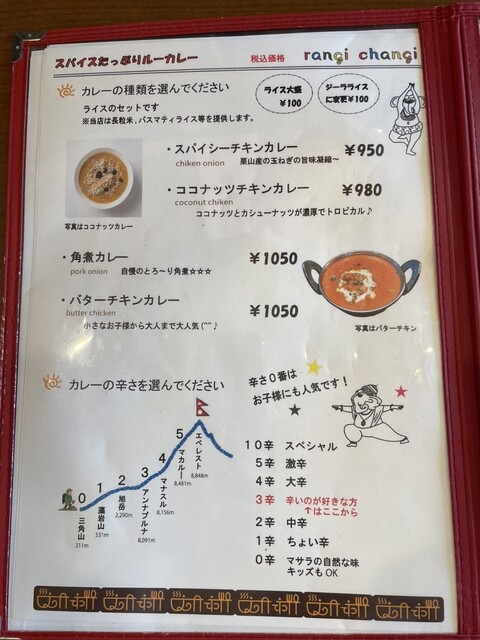 スパイスたっぷりルーカレー 税込価格 rangi changi
カレーの種類を選んでください
ライスのセットです
※当店は長粒米、バスマティライス等を提供します。
ライス大盛
¥100
ジーラライス
に変更¥100
・スパイシーチキンカレー ¥950
chiken onion 栗山産の玉ねぎの旨味凝縮~
・ココナッツチキンカレー ¥980
coconut chiken
ココナッツとカシューナッツが濃厚でトロピカル♪
写真はココナッツカレー
・角煮カレー ¥1050
pork onion 自慢のとろ~り角煮☆☆☆
・バターチキンカレー ¥1050
butter chicken
小さなお子様から大人まで大人気(^^♪
写真はバターチキン
カレーの辛さを選んでください
辛さ0番は
お子様にも人気です!
0 三角山 311m
1 藻岩山 531m
2 旭岳 2,290m
3 アンナプルナ 8,091m
4 マナスル 8,156m
5 マカルー 8,481m
エベレスト 8,848m
10辛 スペシャル
5辛 激辛
4辛 大辛
3辛 辛いのが好きな方
↑はここから
2辛 中辛
1辛 ちょい辛
0辛 マサラの自然な味
キッズもOK